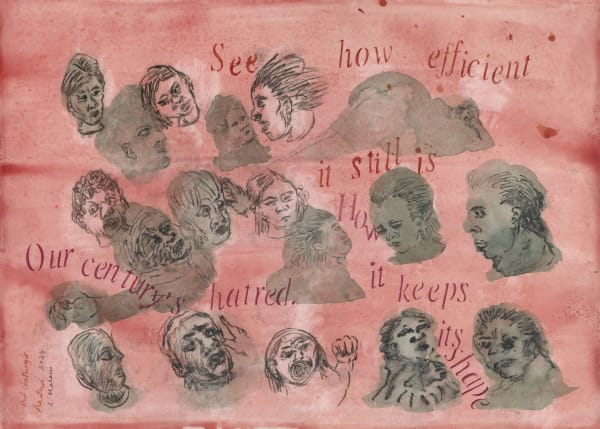 See how efficient
it still is
How
it keeps
its shape
Our century's hatred.
Our Century's
Hatred 2024